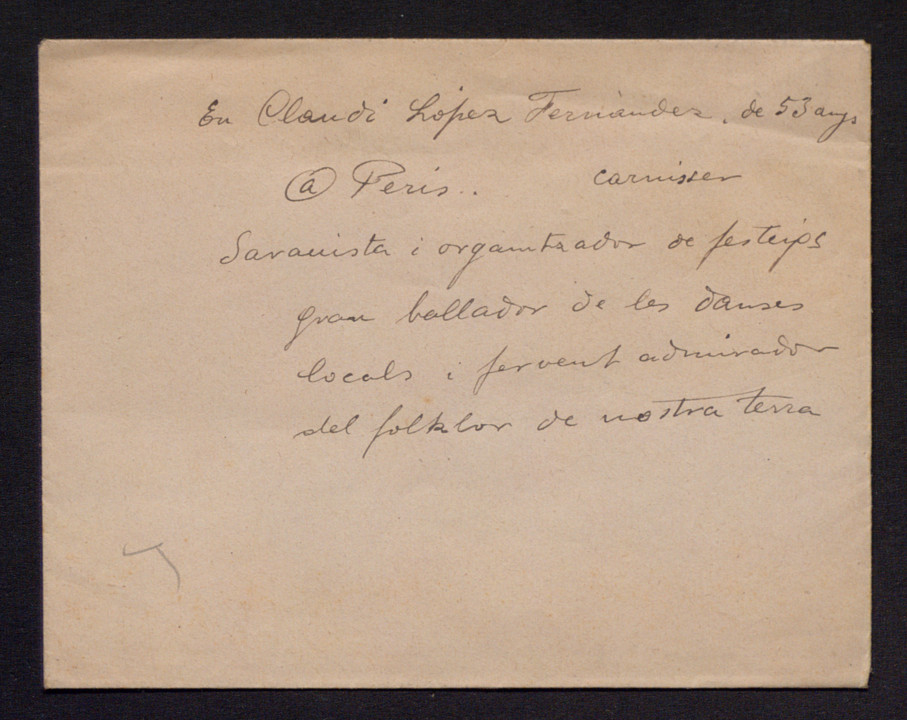 En Claudi López Fernández, de 53 anys
(a) Peris.. carnisser
Sarauista i organitzador de festeigs
gran ballador de les danses
locals i fervent admirador
del folklor de nostra terra